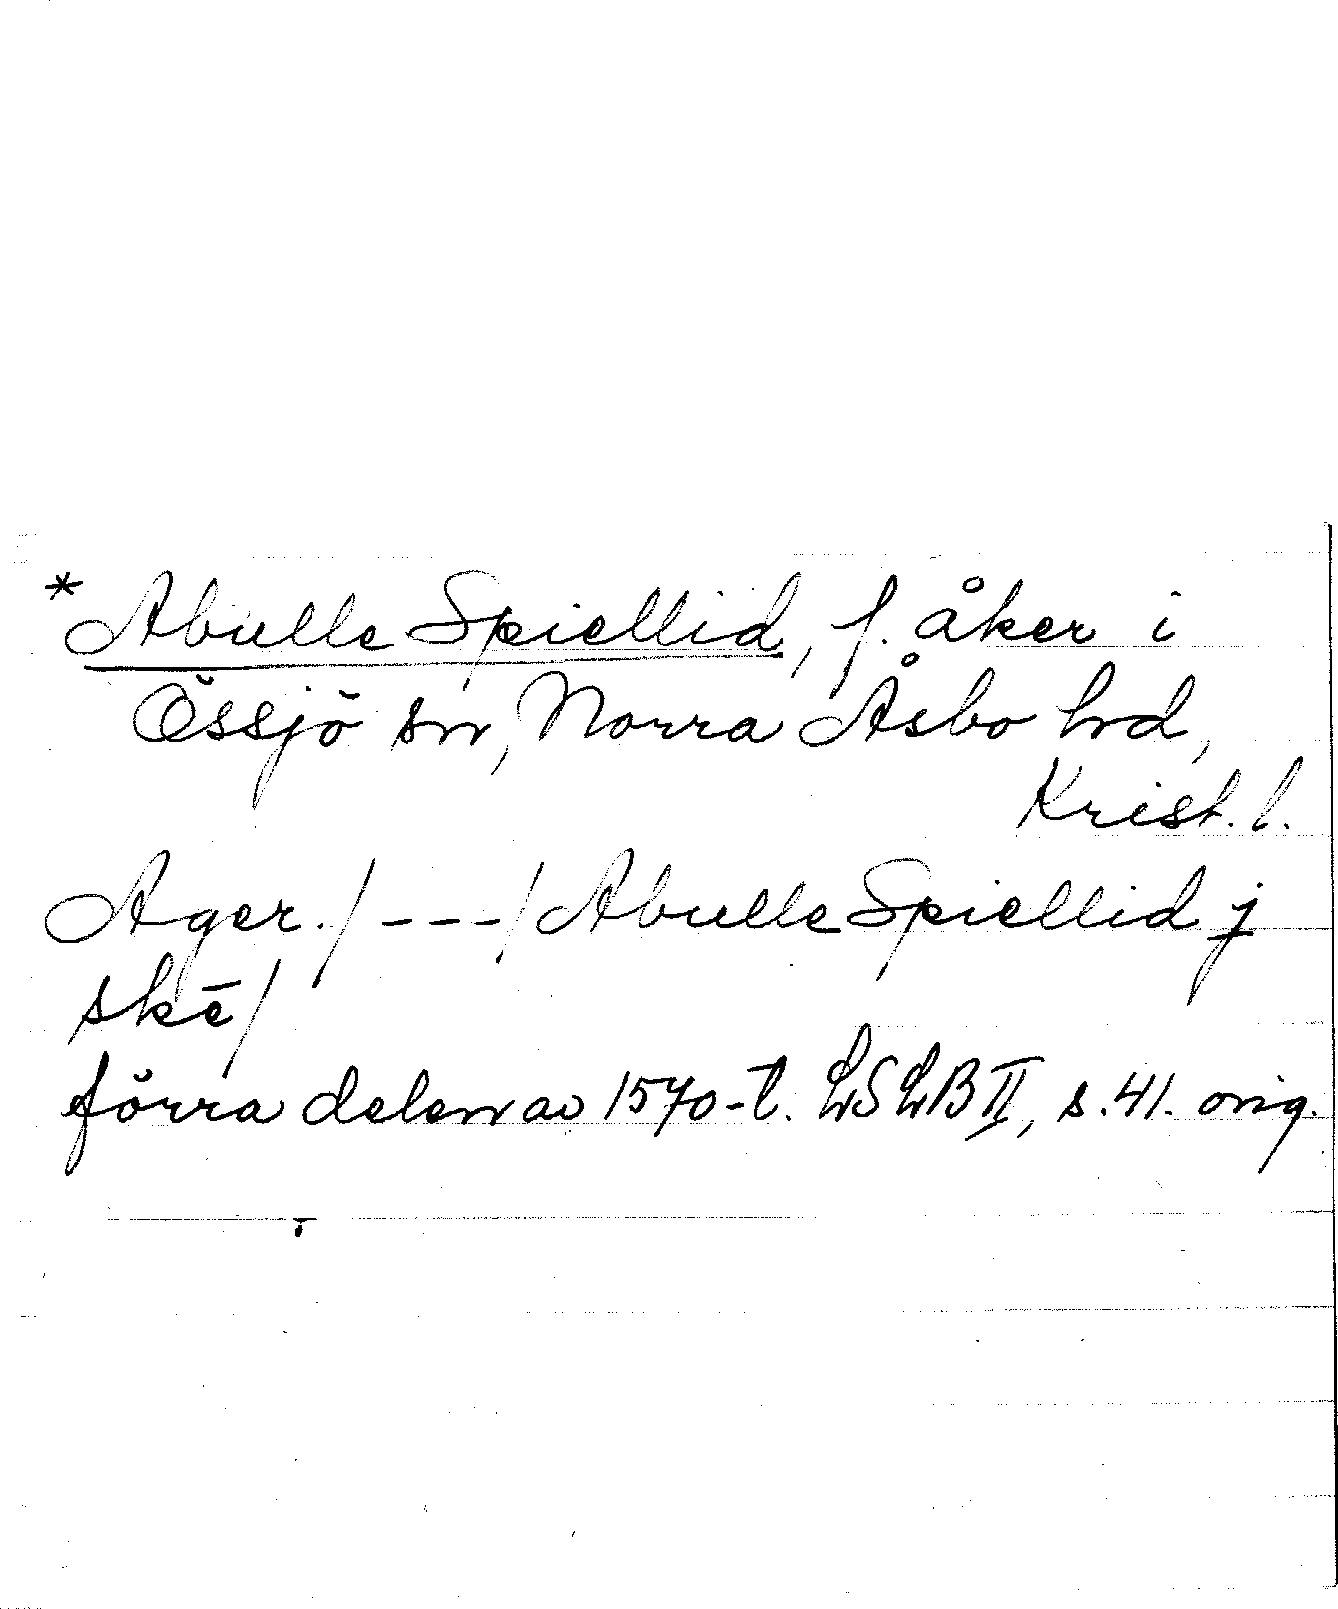 * Abulle Spiellid, f. åker i
Össjö sn, Norra Åsbo hd,
Krist. l.
Ager. / --- / Abulle Spiellid j
skē /
förra delen av 1570-t. LSLB II, s. 41. orig.